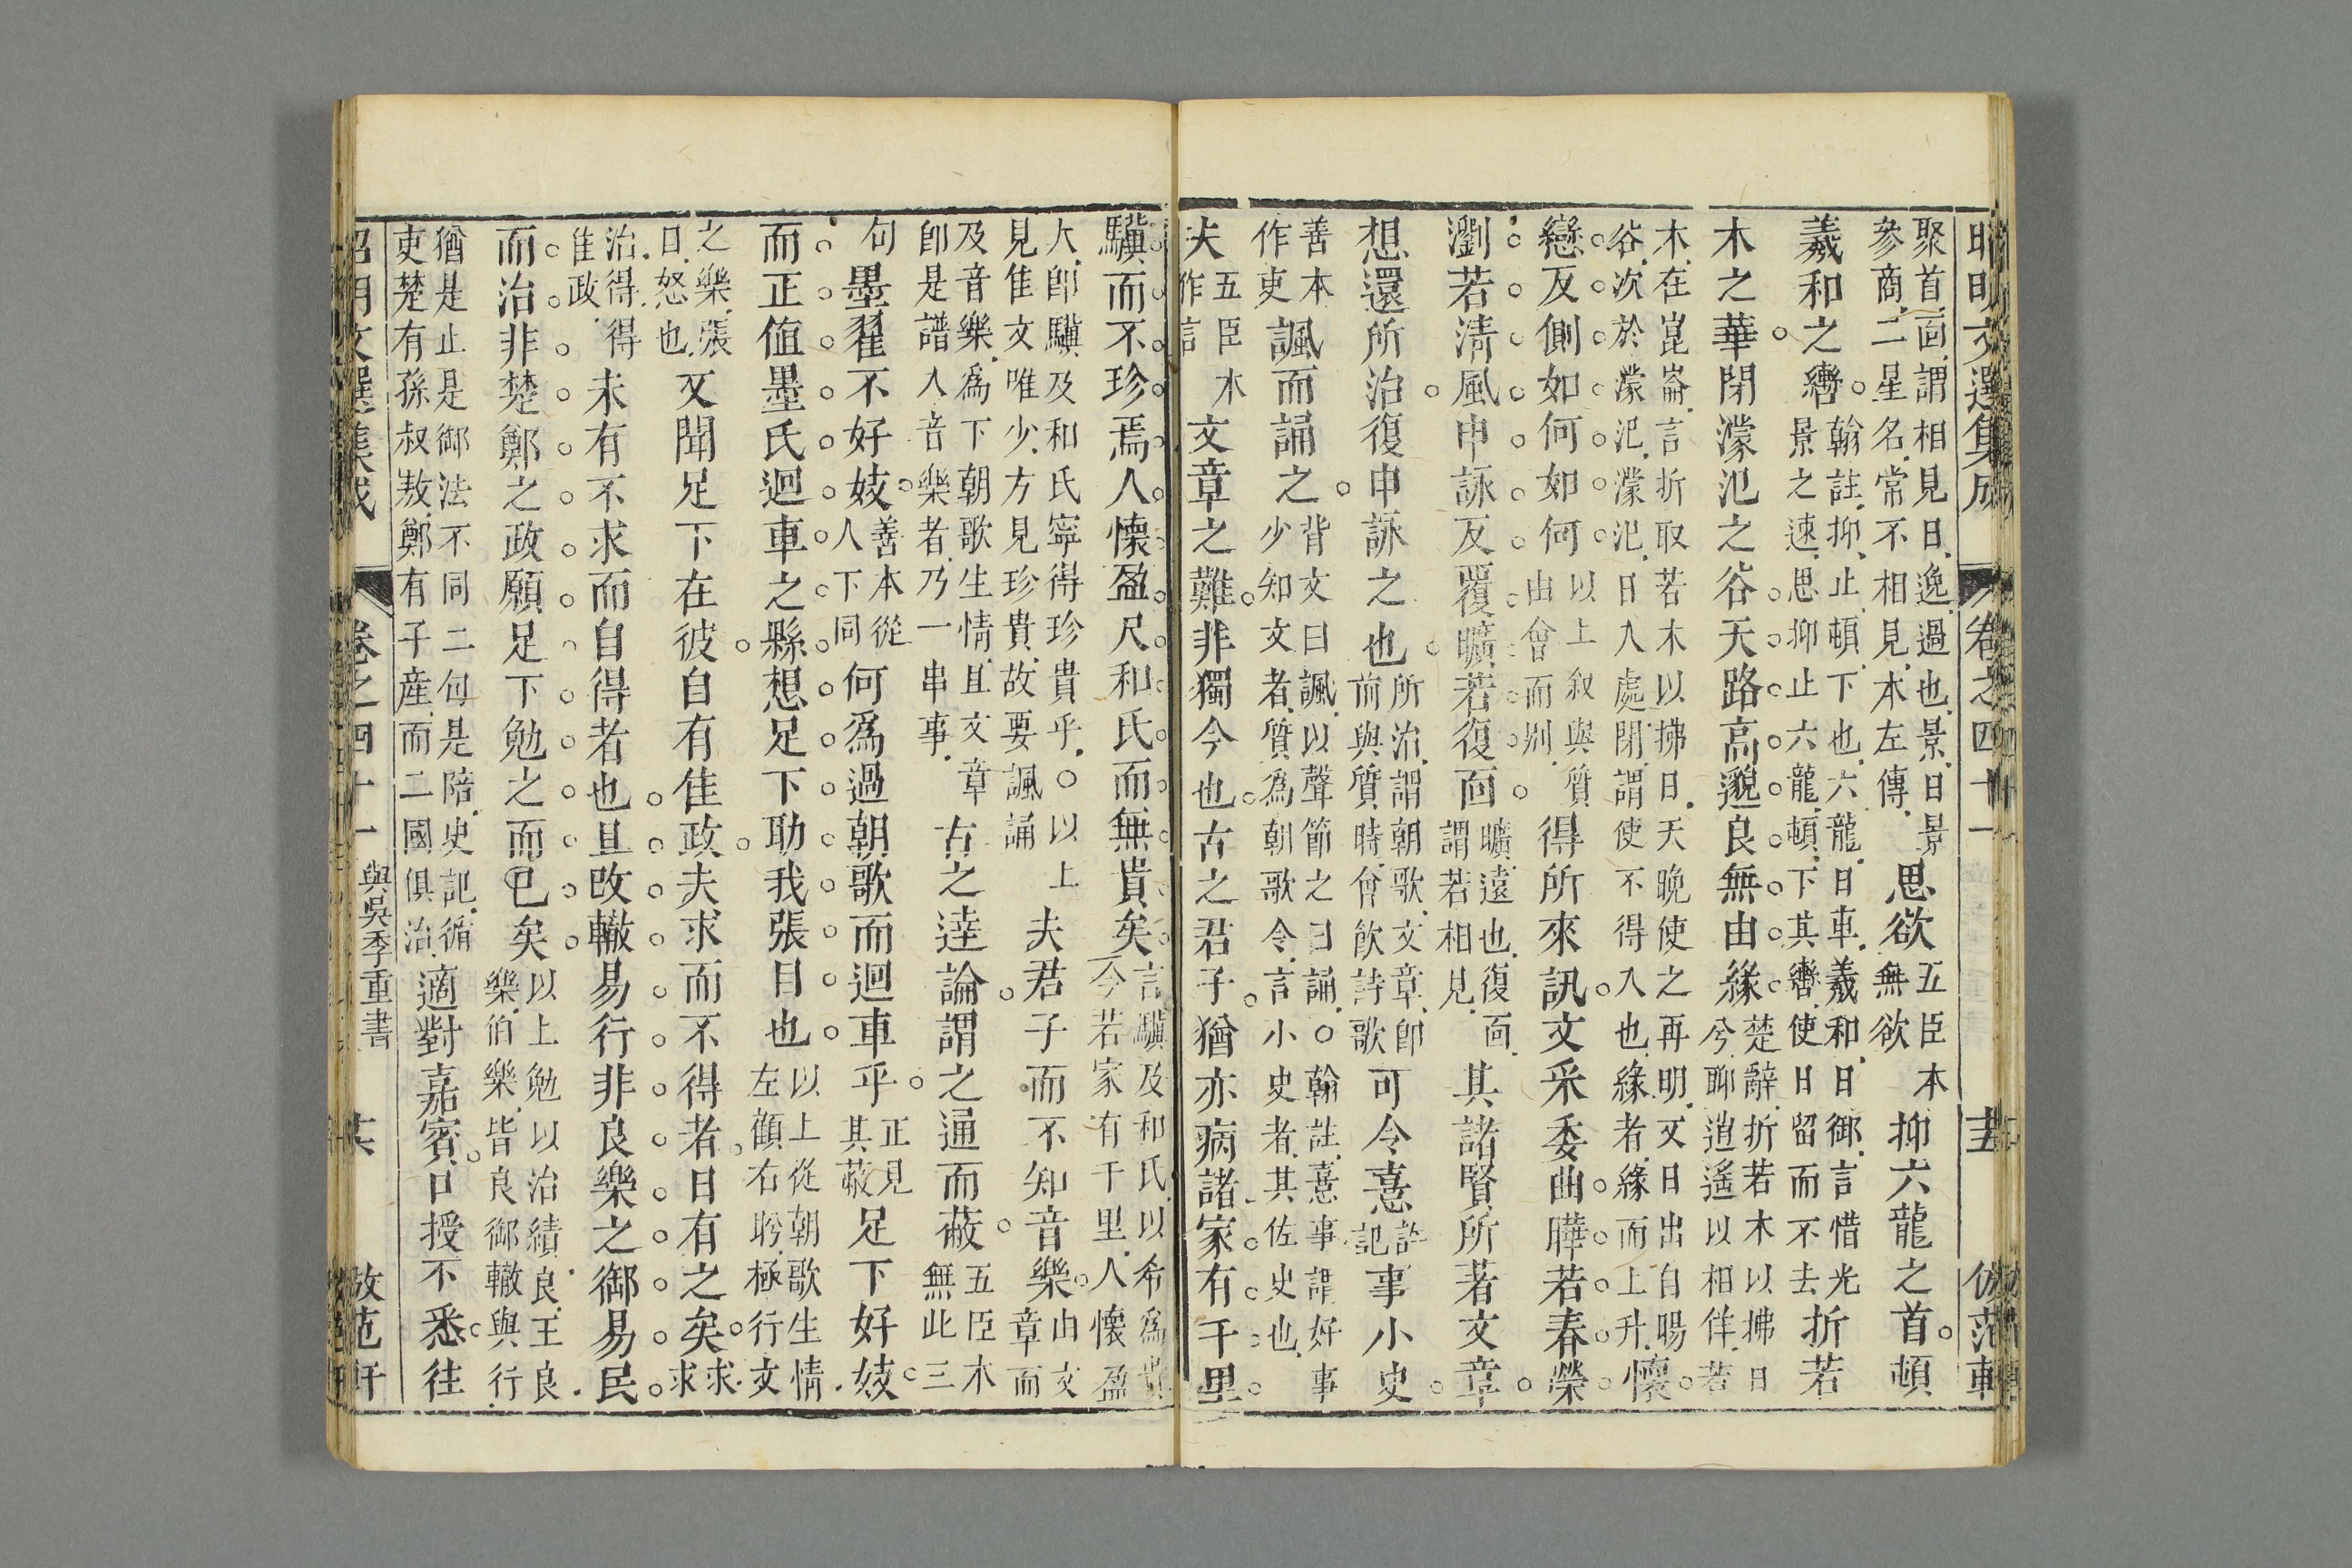 昭明文選集成 卷之四十一 圭 仿范軒
聚首。面、謂相見日。逸、過也。景、日景
參商、二星名、常不相見。本左傳。思欲五臣本無欲抑六龍之首。頓
羲和之轡。翰註、抑、止。頓、下也。六龍、日車。羲和、日御。言惜光景之速、思抑止六龍、頓下其轡、使日留而不去折若
木之華。閉濛汜之谷。天路高邈。良無由緣。楚辭、折若木以拂日兮、聊逍遙以相佯。若
木、在崑崙。言折取若木以拂日。天晚使之再明。又日出自暘谷、次於濛汜。濛汜、日入處。閉、謂使不得入也。緣者、緣而上升。懷
戀反側。如何如何。以上叙與質由會而別。得所來訊。文采委曲。曄若春榮。
瀏若淸風。申詠反覆。曠若復面。曠、遠也。復面、謂若相見。其諸賢所著文章。
想還所治。復申詠之也。所治、謂朝歌。文章、卽前與質時會飮詩歌可令憙許記事小史
諷而誦之。善本作吏背文曰諷、以聲節之曰誦。○翰註、憙事、謂好事少知文者。質爲朝歌令、言小史者、其佐史也。
夫五臣本作言文章之難。非獨今也。古之君子。猶亦病諸。家有千里。
驥而不珍焉。人懷盈尺。和氏而無貴矣。言驥及和氏、以希爲貴今若家有千里、人懷盈
尺、卽驥及和氏寧得珍貴乎。○以上見佳文唯少、方見珍貴、故要諷誦夫君子而不知音樂。由文章而
及音樂、爲下朝歌生情、且文章卽是譜入音樂者、乃一串事。古之逹論。謂之通而蔽。五臣本無此三
句墨翟不好妓。善本從人下同何爲過朝歌而迴車乎。正見其蔽足下好妓。
而正値墨氏迴車之縣。想足下助我張目也。以上從朝歌生情左顧右盻、極行文
之樂。張目、怒也。又聞足下在彼。自有佳政。夫求而不得者。日有之矣。求求
治得、得佳政。未有不求而自得者也。且改轍易行。非良樂之御。易民
而治。非楚鄭之政。願足下勉之而已矣。以上勉以治績。良、王良樂、伯樂、皆良御。轍與行、
猶是止是御法不同二句是陪。史記、循吏楚有孫叔敖、鄭有子產、而二國俱治。適對嘉賓。口授不悉。往
昭明文選集成 卷之四十一 與吳季重書 共 仿范軒